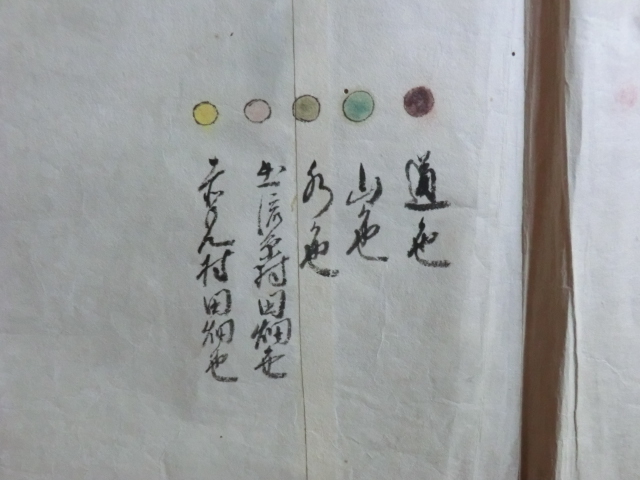 道色
山色
水色
出流原村田畑色
赤見村田畑色